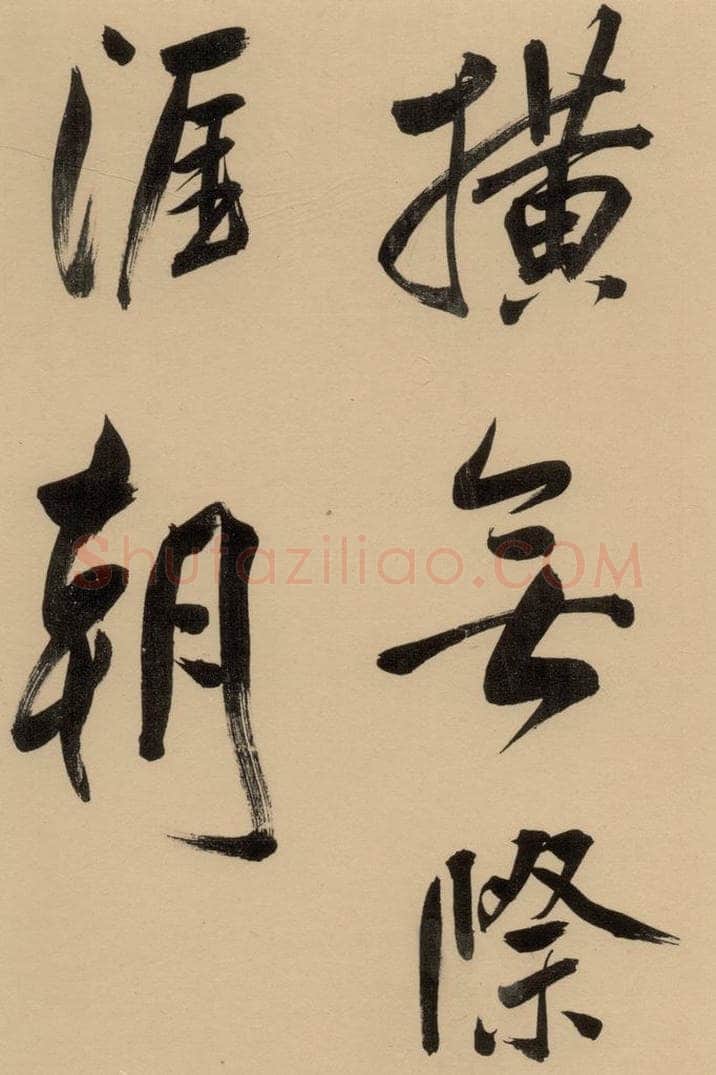 橫無際
涯朝
Shufaziliao.COM